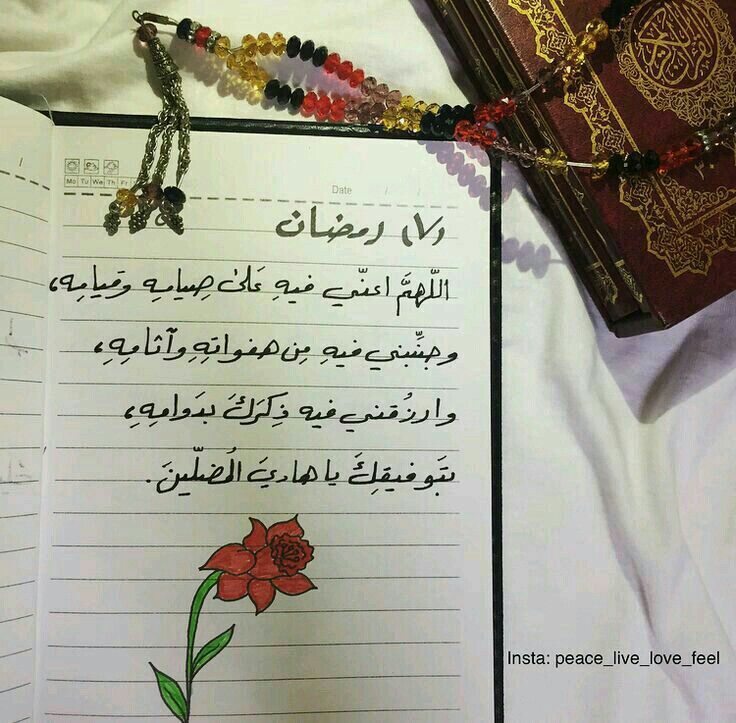 القرآن الكريم
Mo Tu We Th Fr
Date / /
(٧) رمضان
اللّهمَّ اعنّي فيهِ عَلىٰ صِيامِهِ وَقيامِهِ،
وجنِّبني فيهِ مِن هفواتِهِ وآثامِهِ،
وارزُقني فيه ذِكرَكَ بدَوامِهِ،
بتَوفيقِكَ ياهاديَ المُضلّينَ.
Insta: peace_live_love_feel